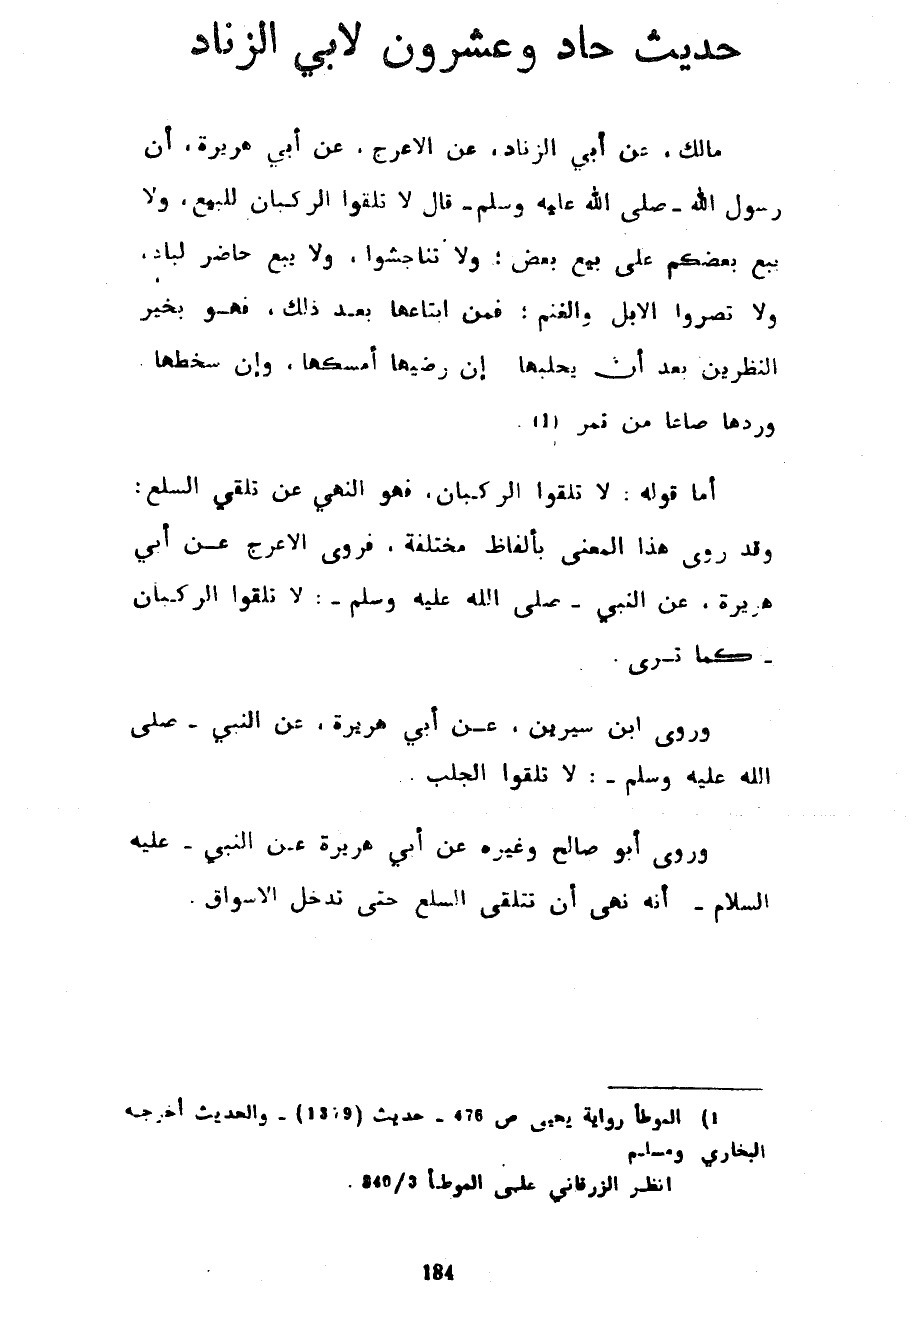 حديث حاد وعشرون لابي الزناد
مالك، عن أبي الزناد، عن الاعرج، عن أبي هريرة، أن
رسول الله ـ صلى الله عليه وسلم ـ قال لا تلقوا الركبان للبيع، ولا
يبع بعضكم على بيع بعض؛ ولا تناجشوا، ولا يبع حاضر لباد،
ولا تصروا الابل والغنم؛ فمن ابتاعها بعد ذلك، فهو بخير
النظرين بعد أن يحلبها إن رضيها أمسكها، وإن سخطها
وردها صاعا من تمر (1).
أما قوله: لا تلقوا الركبان، فهو النهي عن تلقي السلع:
وقد روى هذا المعنى بألفاظ مختلفة، فروى الاعرج عن أبي
هريرة، عن النبي ـ صلى الله عليه وسلم ـ: لا تلقوا الركبان
ـ كما ترى.
وروى ابن سيرين، عن أبي هريرة، عن النبي ـ صلى
الله عليه وسلم ـ: لا تلقوا الجلب.
وروى أبو صالح وغيره عن أبي هريرة عن النبي ـ عليه
السلام ـ أنه نهى أن تتلقى السلع حتى تدخل الاسواق.
1) الموطأ رواية يحيى ص 476 ـ حديث ـ والحديث أخرجه
البخاري ومسلم
انظر الزرقاني على الموطأ 340/3.
184